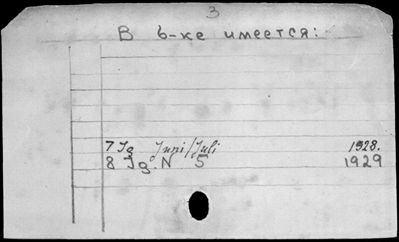 3
В б-ке имеется:
7 Jg Juni/Juli 1928.
8 Jg. N 5 1929